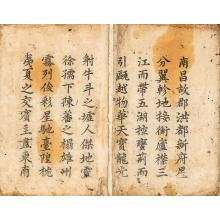 南昌故郡洪都新府星
分翼軫地接衡廬襟三
江而帶五湖控蠻荊而
引甌越物華天寶龍光
射牛斗之墟人傑地靈
徐孺下陳蕃之榻雄州
霧列俊彩星馳臺隍枕
夷夏之交賓主盡東南